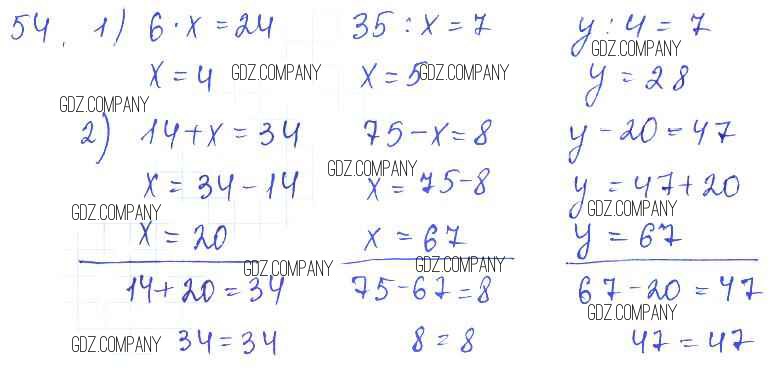 54. 1) 6 · x = 24 35 : x = 7 y : 4 = 7
GDZ.COMPANY
x = 4 GDZ.COMPANY x = 5 GDZ.COMPANY y = 28
GDZ.COMPANY
2) 14 + x = 34 75 - x = 8 y - 20 = 47
GDZ.COMPANY
x = 34 - 14 x = 75 - 8 y = 47 + 20
GDZ.COMPANY GDZ.COMPANY
x = 20 x = 67 y = 67
GDZ.COMPANY GDZ.COMPANY
14 + 20 = 34 75 - 67 = 8 67 - 20 = 47
GDZ.COMPANY
GDZ.COMPANY 34 = 34 8 = 8 47 = 47